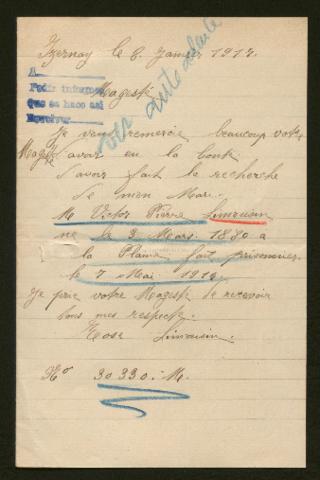 Izernay le 6 Janvier 1917.
A
Pedir informes
que se hace asi
Devolver
Magesté
voir autre lettre
Je vous remercie beaucoup votre
Magesté d'avoir eu la bonté
d'avoir fait la recherche
de mon Mari.
M Victor Pierre Limousin
né le 3 Mars 1880 a
la Plaine fait prisonnier
le 7 Mai 1916
Je prie votre Magesté de recevoir
tous mes respects.
Rose Limousin.
No 30330. M.